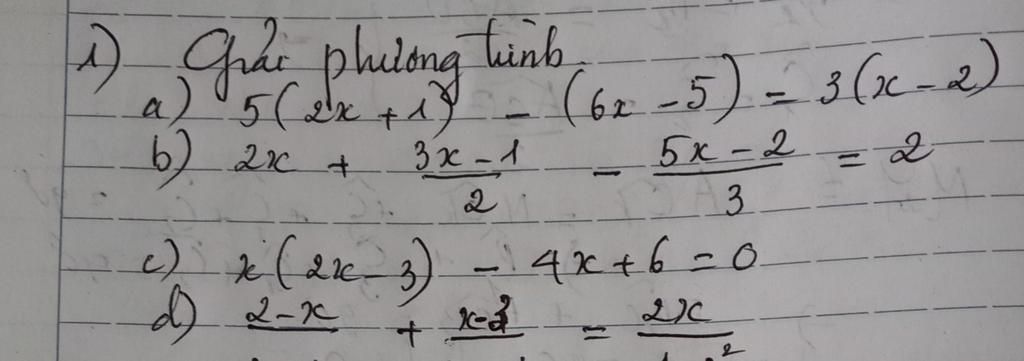 1) Giải phương trình
a) 5(2x + 1) - (6x - 5) = 3(x - 2)
b) 2x + \frac{3x - 1}{2} - \frac{5x - 2}{3} = 2
c) x(2x - 3) - 4x + 6 = 0
d) 2 - x + = 2x
2